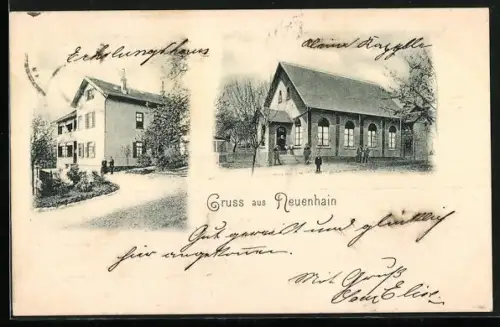 Erholungshaus
kleine Kapelle
Gruss aus Neuenhain
Gut gereist und glücklich
hier angekommen.
Mit Gruß
Elise